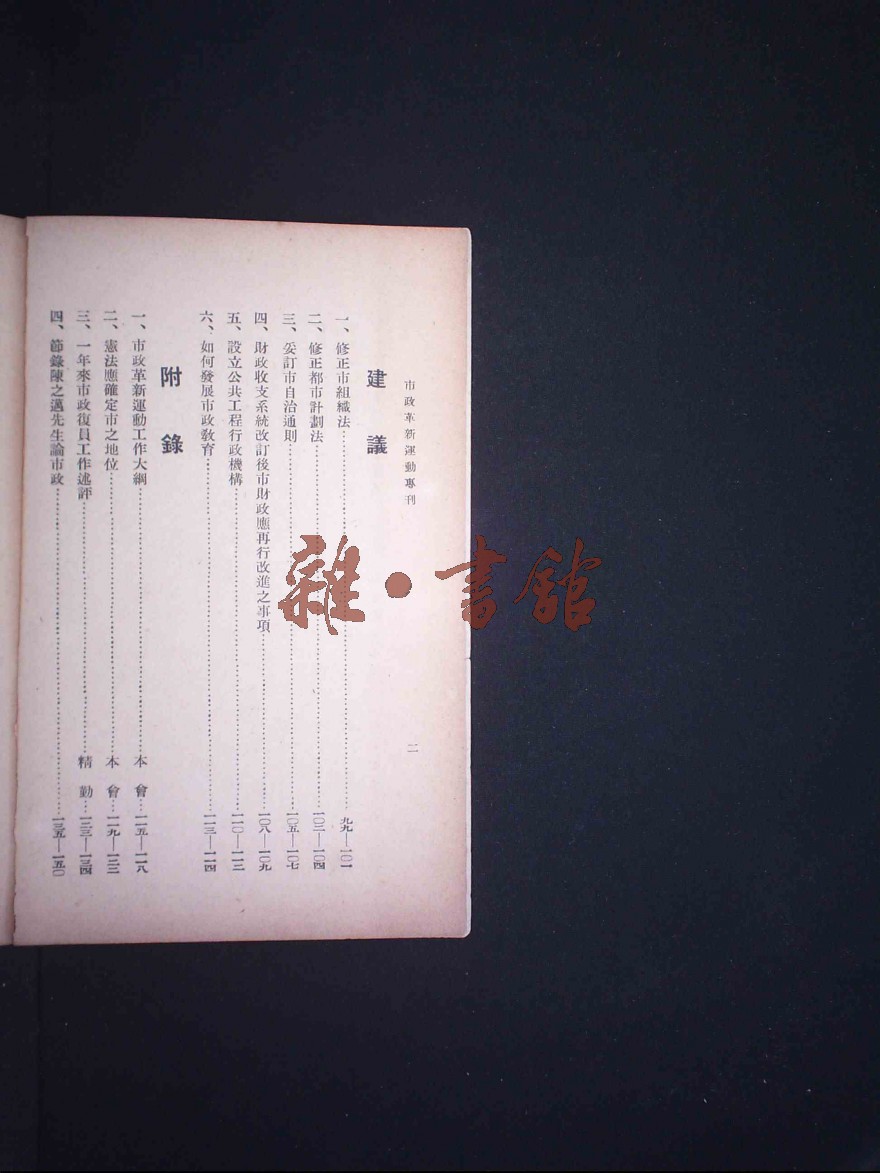 市政革新運動專刊
二
建議
一、修正市組織法……九九—一〇一
二、修正都市計劃法……一〇二—一〇四
三、妥訂市自治通則……一〇五—一〇七
四、財政收支系統改訂後市財政應再行改進之事項……一〇八—一〇九
五、設立公共工程行政機構……一一〇—一一二
六、如何發展市政敎育……一一三—一一四
附錄
一、市政革新運動工作大綱……本會…一一五—一一八
二、憲法應確定市之地位……本會…一一九—一二二
三、一年來市政復員工作述評……精勤…一二三—一三四
四、節錄陳之邁先生論市政……一三五—一五〇
雜·書館